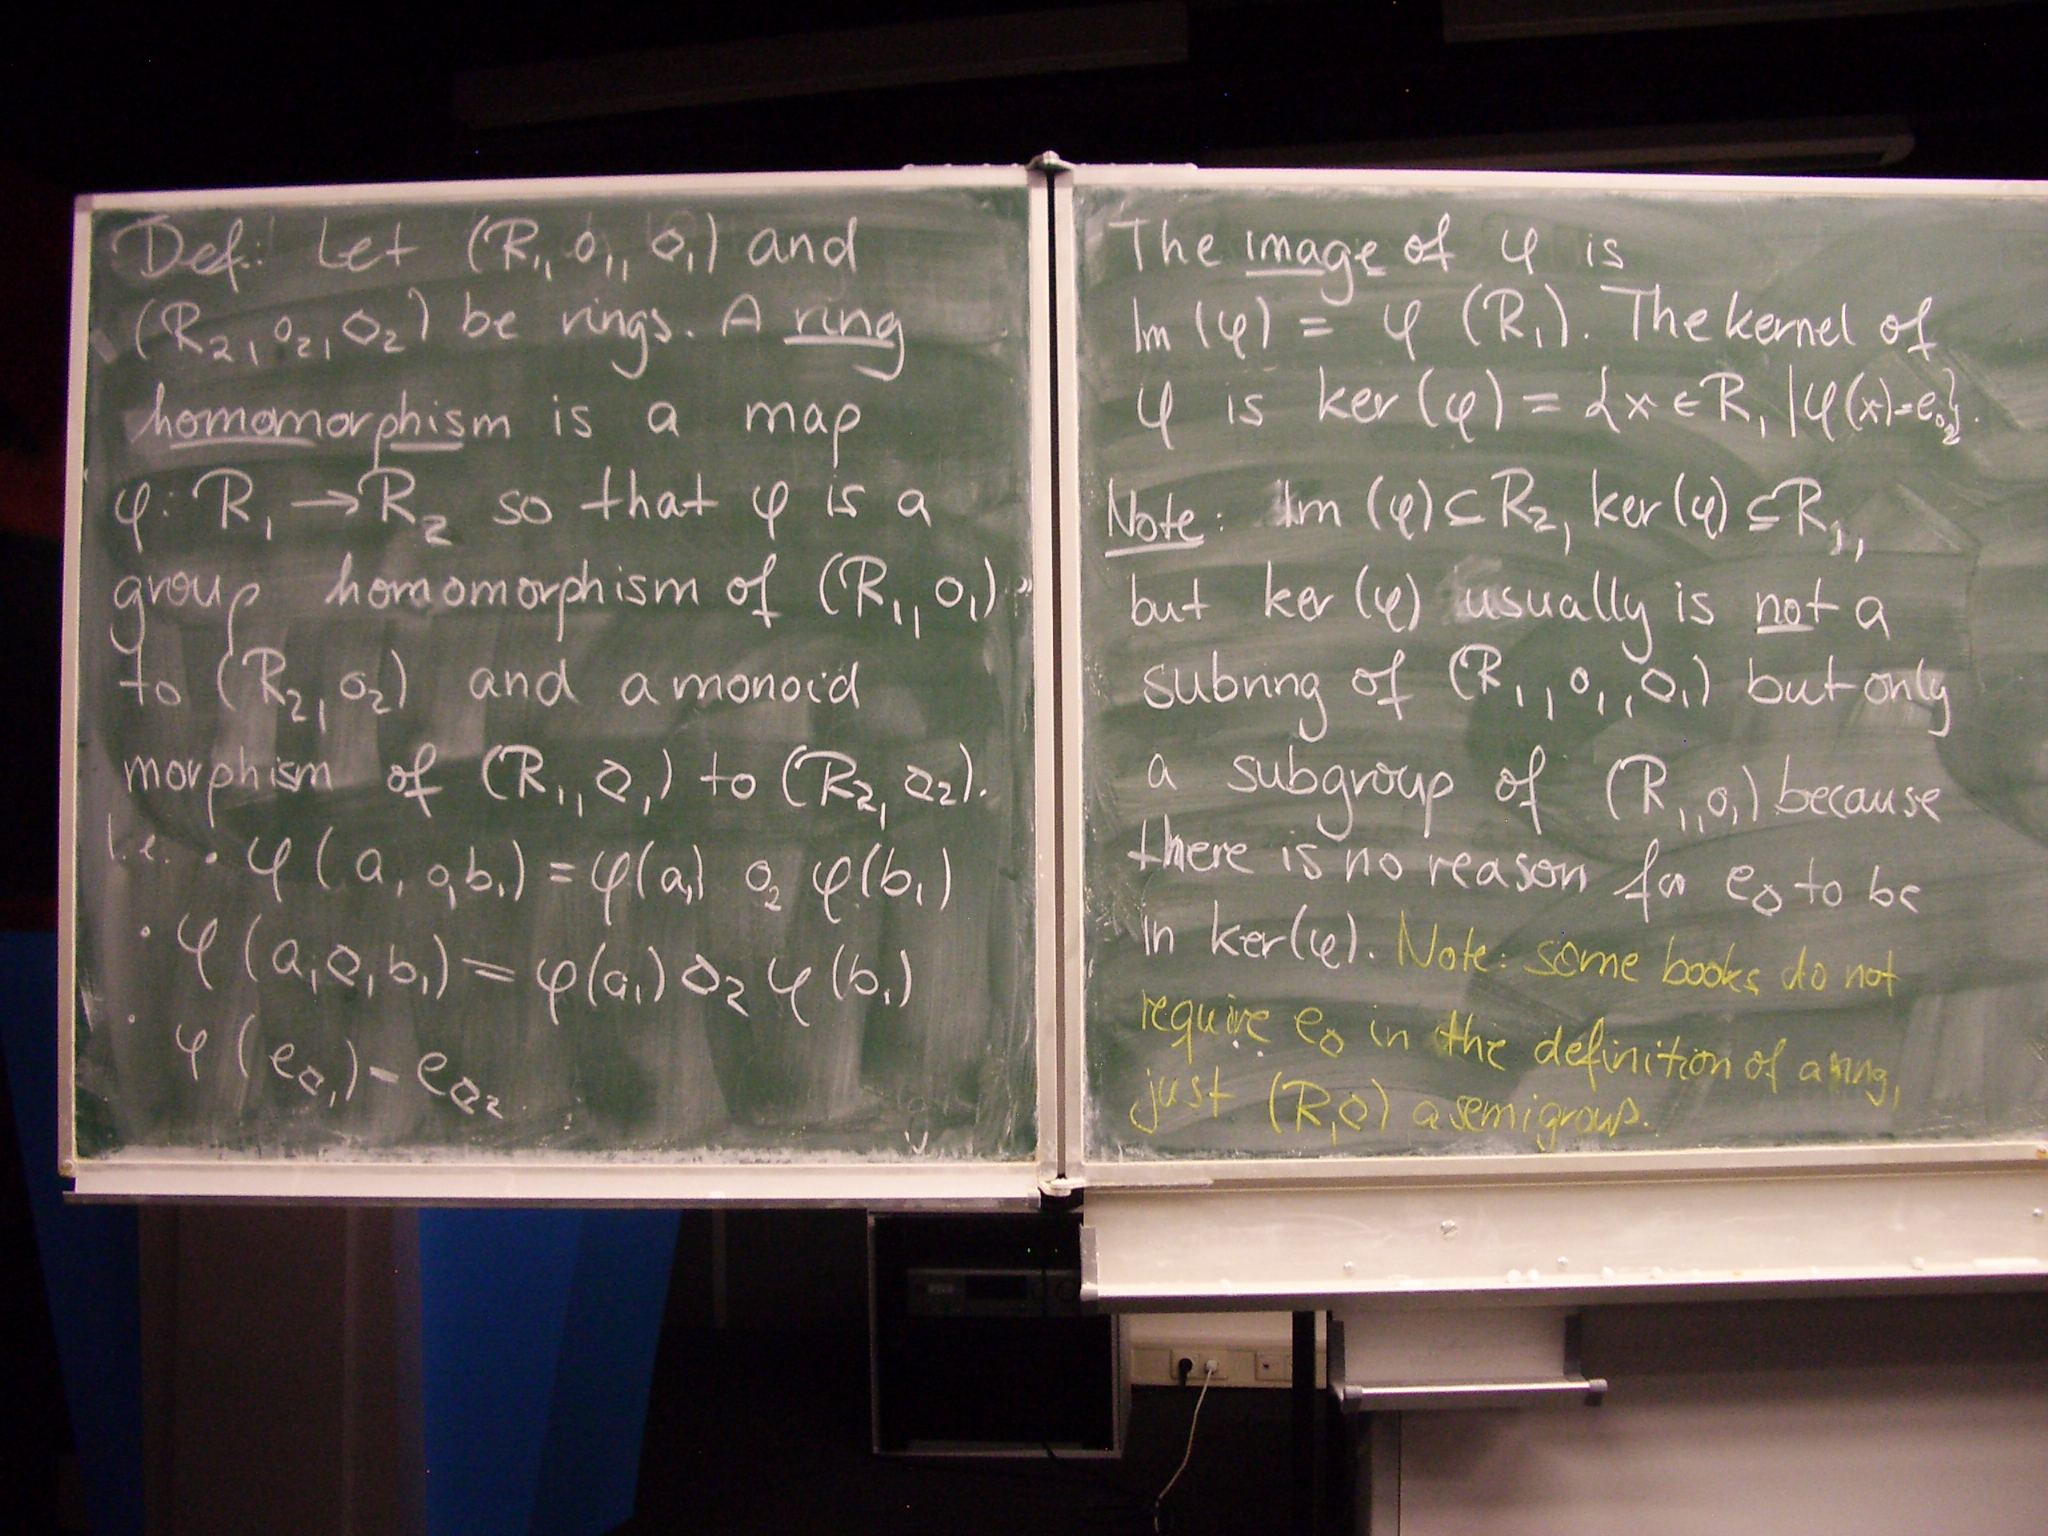 Def.: Let (R₁, o₁, ⌂₁) and
(R₂, o₂, ⌂₂) be rings. A ring
homomorphism is a map
φ: R₁ → R₂ so that φ is a
group homomorphism of (R₁, o₁)
to (R₂, o₂) and a monoid
morphism of (R₁, ⌂₁) to (R₂, ⌂₂).
I.e. • φ(a₁ o₁ b₁) = φ(a₁) o₂ φ(b₁)
• φ(a₁ ⌂₁ b₁) = φ(a₁) ⌂₂ φ(b₁)
• φ(e⌂₁) = e⌂₂
The image of φ is
Im (φ) = φ (R₁). The kernel of
φ is ker(φ) = {x ∈ R₁ | φ(x) = e_o₂}.
Note: Im (φ) ⊆ R₂, ker(φ) ⊆ R₁,
but ker (φ) usually is not a
subring of (R₁, o₁, ⌂₁) but only
a subgroup of (R₁, o₁) because
there is no reason for e⌂ to be
in ker(φ). Note: some books do not
require e⌂ in the definition of a ring,
just (R, ⌂) a semigroup.